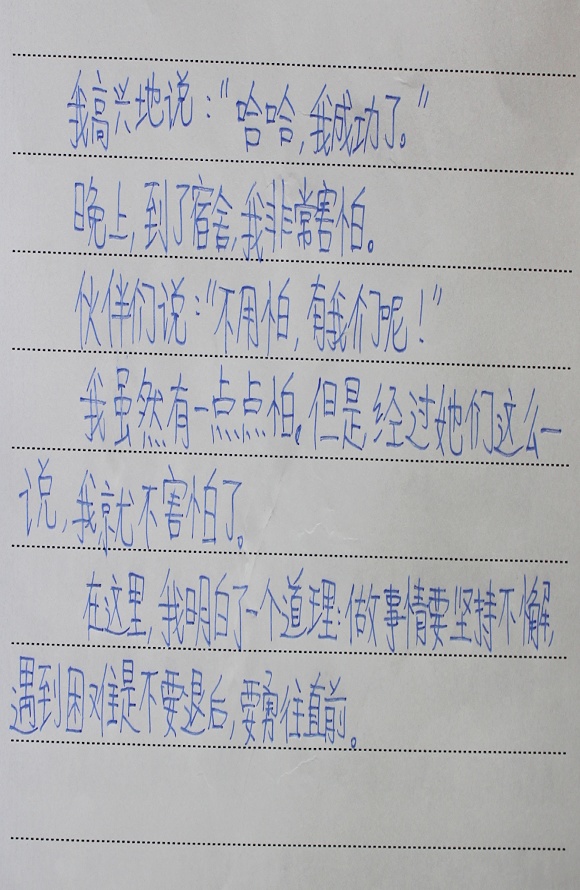 我搞兴地说：“哈哈，我成功了。”
晚上，到了宿舍，我非常害怕。
伙伴们说：“不用怕，有我们呢！”
我虽然有一点点怕。但是经过她们这么一
说，我就不害怕了。
在这里，我明白了一个道理：做事情要坚持不懈，
遇到困难是不要退后，要勇往直前。